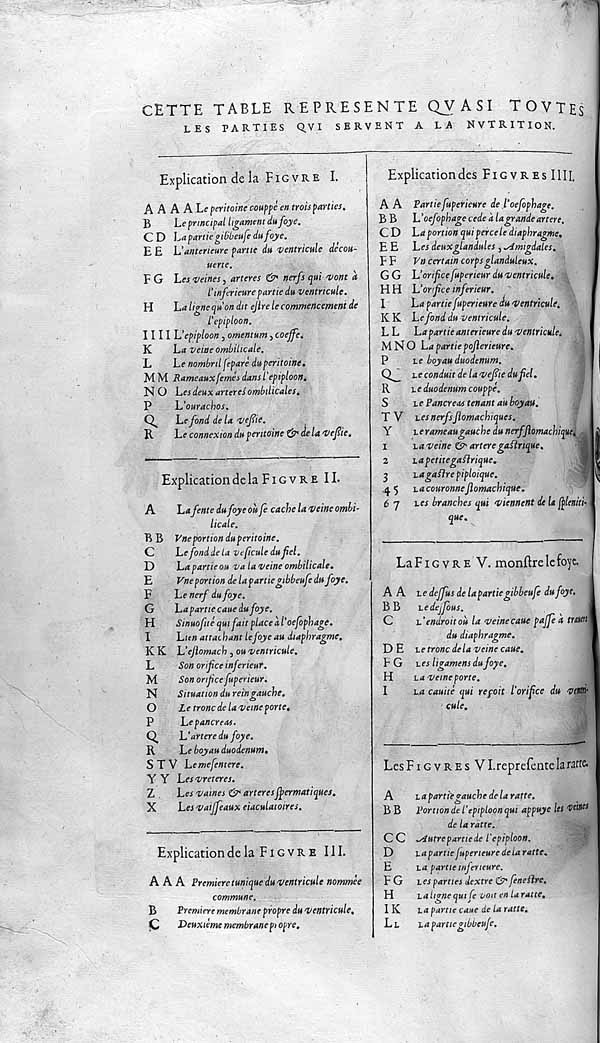 CETTE TABLE REPRESENTE QVASI TOVTES
LES PARTIES QVI SERVENT A LA NVTRITION.
Explication de la FIGVRE I.
A A A A Le peritoine couppé en trois parties.
B Le principal ligament du foye.
C D La partie gibbeuſe du foye.
E E L'anterieure partie du ventricule décou-
uerte.
F G Les veines, arteres & nerfs qui vont à
l'inferieure partie du ventricule.
H La ligne qu'on dit eſtre le commencement de
l'epiploon.
I I I I L'epiploon, omentum, coeffe.
K La veine ombilicale.
L Le nombril ſeparé du peritoine.
M M Rameaux ſemés dans l'epiploon.
N O Les deux arteres ombilicales.
P L'ourachos.
Q Le fond de la veſſie.
R Le connexion du peritoine & de la veſſie.
Explication de la FIGVRE II.
A La fente du foye où ſe cache la veine ombi-
licale.
B B Vne portion du peritoine.
C Le fond de la veſicule du fiel.
D La partie ou va la veine ombilicale.
E Vne portion de la partie gibbeuſe du foye.
F Le nerf du foye.
G La partie caue du foye.
H Sinuoſité qui fait place à l'oeſophage.
I Lien attachant le foye au diaphragme.
K K L'eſtomach, ou ventricule.
L Son orifice inferieur.
M Son orifice ſuperieur.
N Situation du rein gauche.
O Le tronc de la veine porte.
P Le pancreas.
Q L'artere du foye.
R Le boyau duodenum.
S T V Le meſentere.
Y Y Les vreteres.
Z Les vaines & arteres ſpermatiques.
X Les vaiſſeaux eiaculatoires.
Explication de la FIGVRE III.
A A A Premiere tunique du ventricule nommée
commune.
B Premiere membrane propre du ventricule.
C Deuxiéme membrane propre.
Explication des FIGVRES IIII.
A A Partie ſuperieure de l'oeſophage.
B B L'oeſophage cede à la grande artere.
C D La portion qui perce le diaphragme.
E E Les deux glandules, Amigdales.
F F Vn certain corps glanduleux.
G G L'orifice ſuperieur du ventricule.
H H L'orifice inferieur.
I La partie ſuperieure du ventricule.
K K Le fond du ventricule.
L L La partie anterieure du ventricule.
M N O La partie poſterieure.
P Le boyau duodenum.
Q Le conduit de la veſſie du fiel.
R Le duodenum couppé.
S Le Pancreas tenant au boyau.
T V Les nerfs ſtomachiques.
Y Le rameau gauche du nerf ſtomachique.
1 La veine & artere gaſtrique.
2 La petite gaſtrique.
3 La gaſtre piploique.
4 5 La couronne ſtomachique.
6 7 Les branches qui viennent de la ſpleniti-
que.
La FIGVRE V. monſtre le foye.
A A Le deſſus de la partie gibbeuſe du foye.
B B Le deſſous.
C L'endroit où la veine caue paſſe à trauers
du diaphragme.
D E Le tronc de la veine caue.
F G Les ligamens du foye.
H La veine porte.
I La cauité qui reçoit l'orifice du ventri-
cule.
Les FIGVRES VI. repreſente la ratte.
A La partie gauche de la ratte.
B B Portion de l'epiploon qui appuye les veines
de la ratte.
C C Autre partie de l'epiploon.
D La partie ſuperieure de la ratte.
E La partie inferieure.
F G Les parties dextre & ſeneſtre.
H La ligne qui ſe voit en la ratte.
I K La partie caue de la ratte.
L L La partie gibbeuſe.